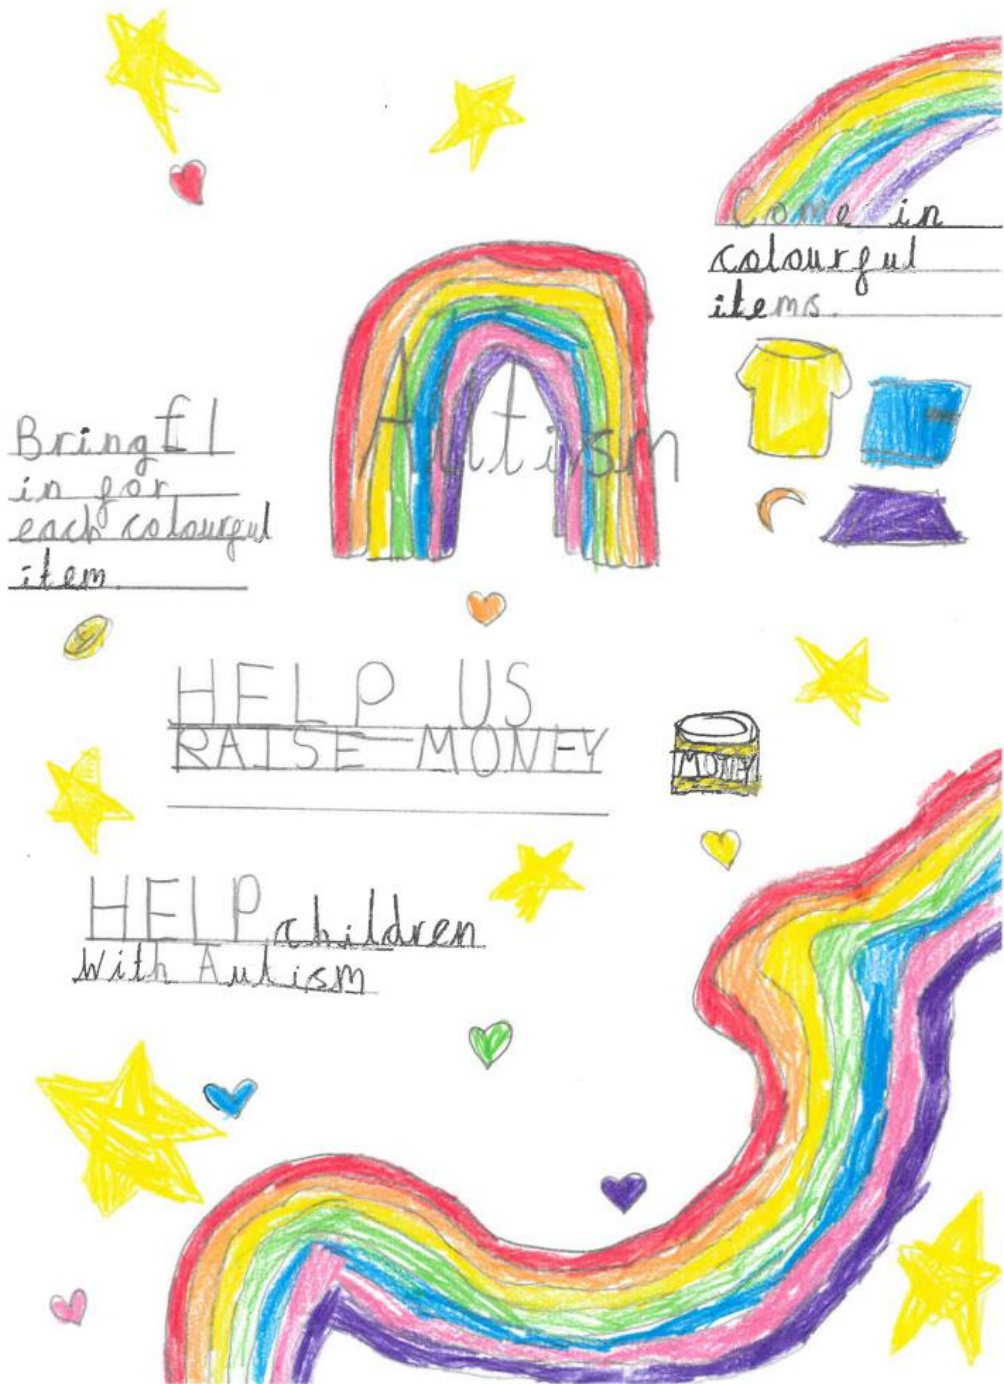 Come in
colourful
items.
Autism
Bring £1
in for
each colourful
item.
HELP US
RAISE MONEY
MONY
HELP children
With Autism